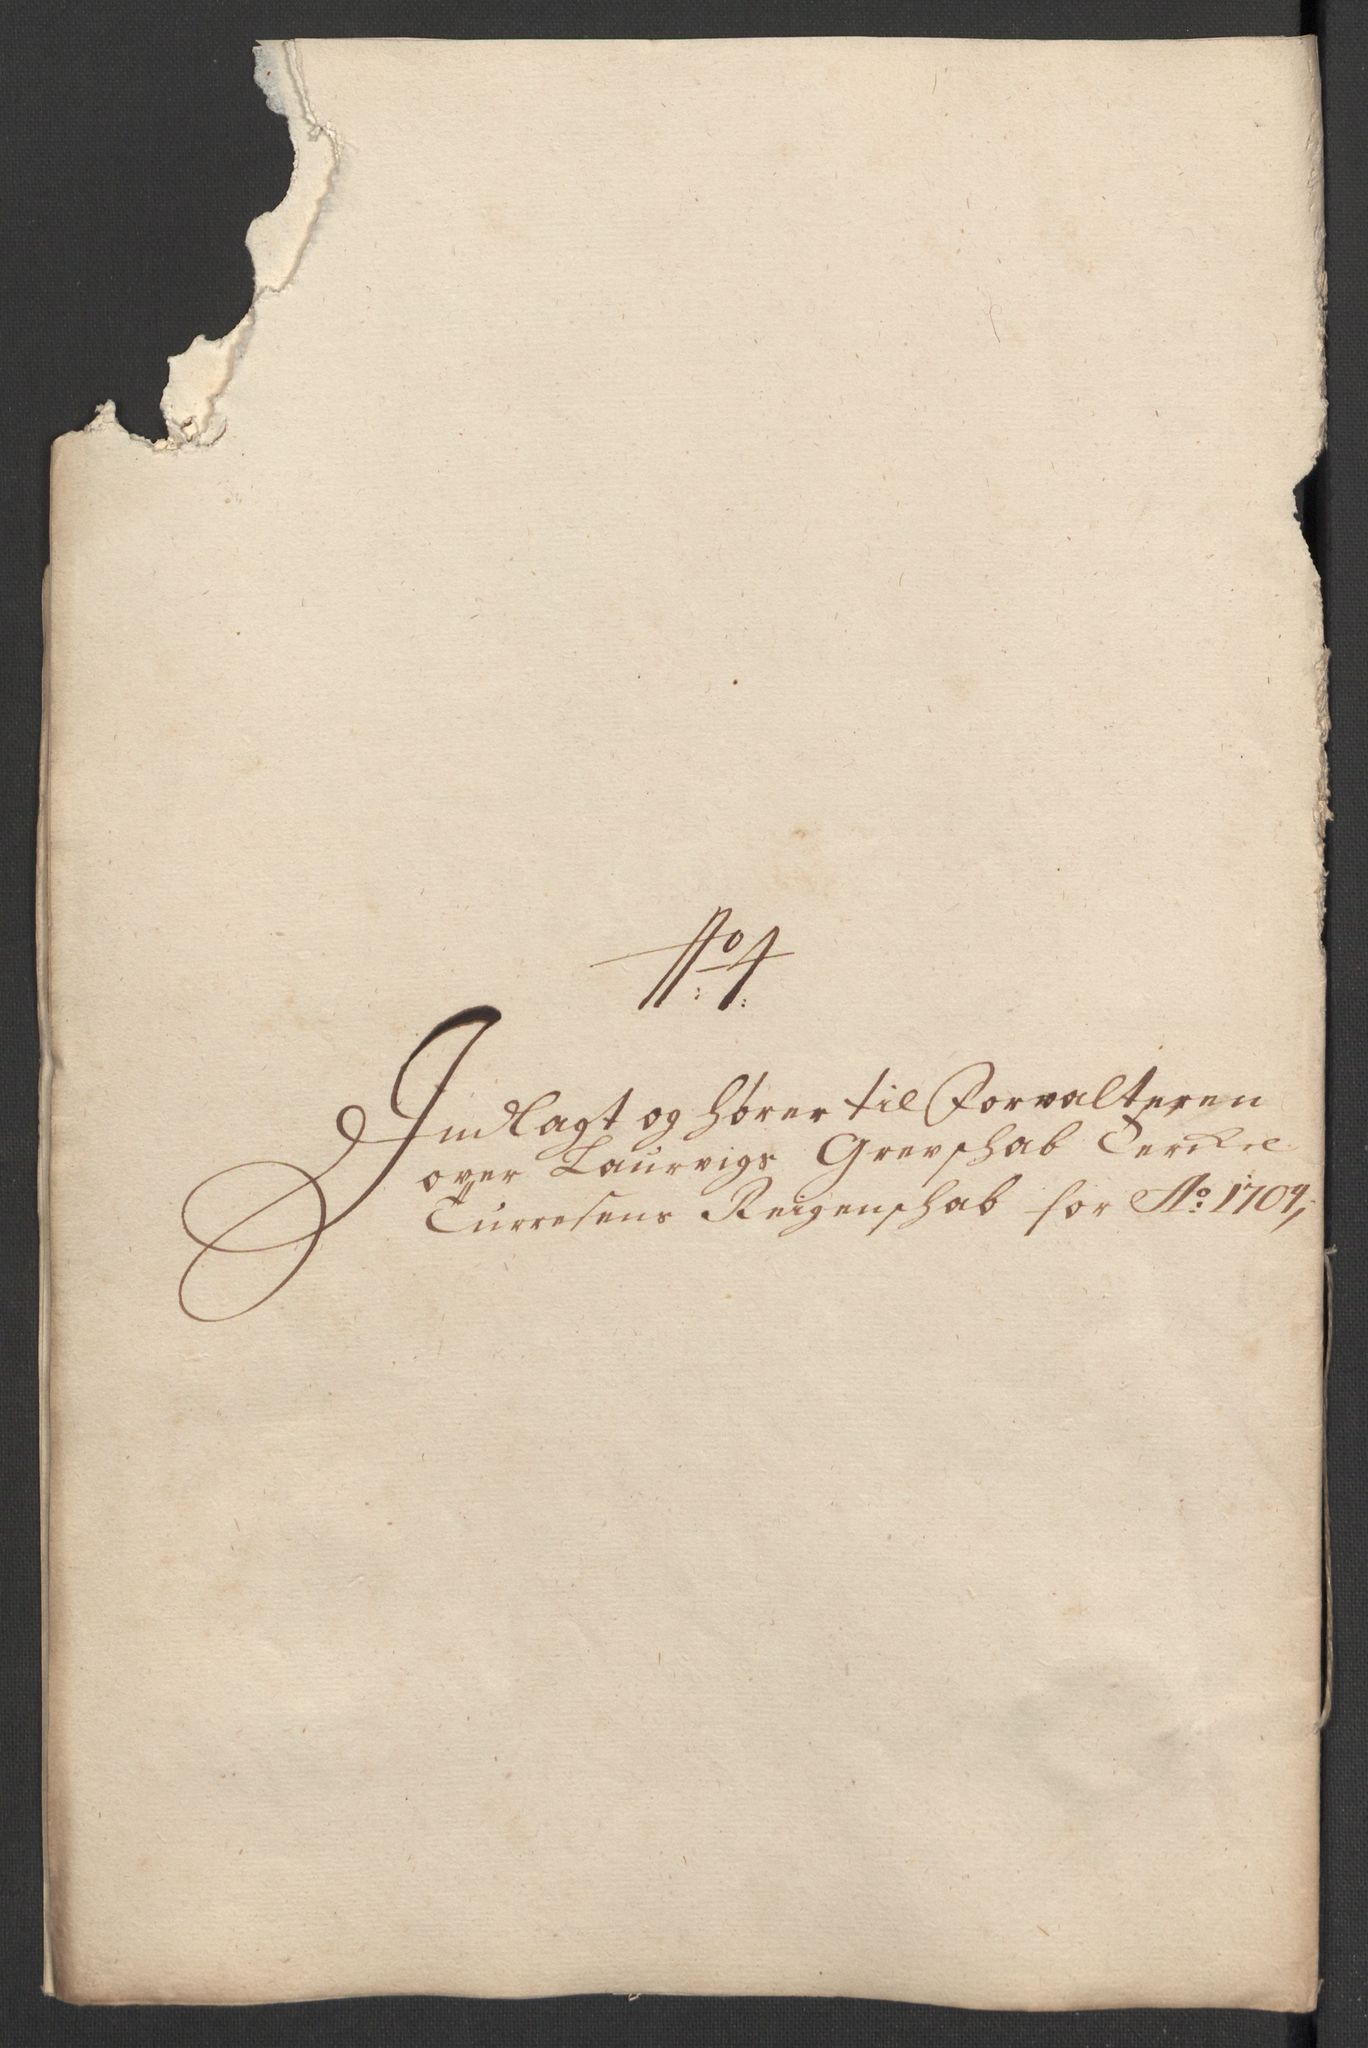 No: 4:
Indlagt og hører til Forvalteren
over Laurvigs Grevschab Terkel
Turresens Reigenschab for Ao: 1704,